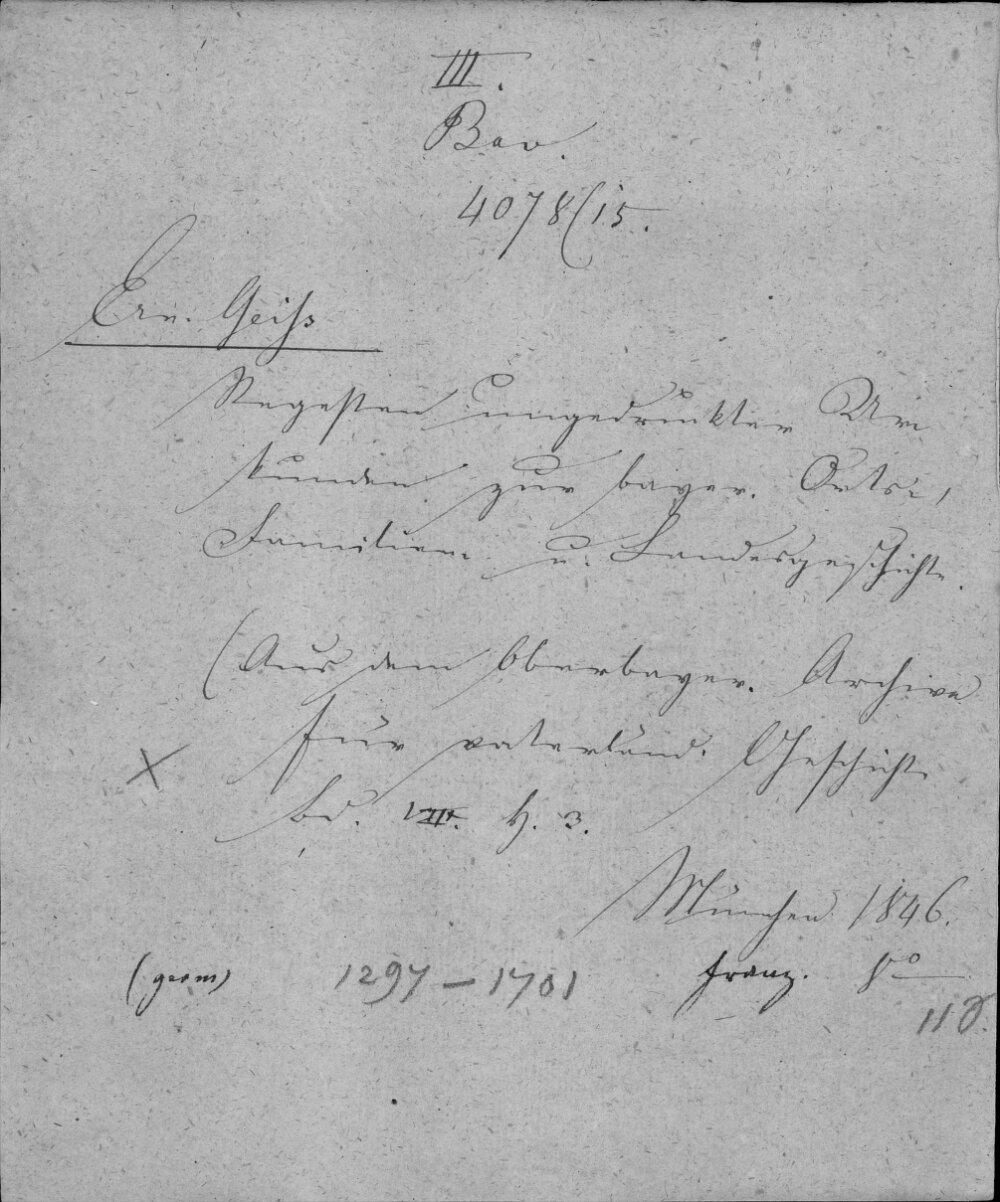 III.
Bav.
4078(15.
Ern. Geiß
Regesten ungedruckter Ur
kunden zur bayer. Orts-,
Familien- u. Landesgeschichte.
(Aus dem Oberbayer. Archive
für vaterländ. Geschichte
bd. VIII. H. 3.
München 1846.
1297-1701 franz. 8°
118.